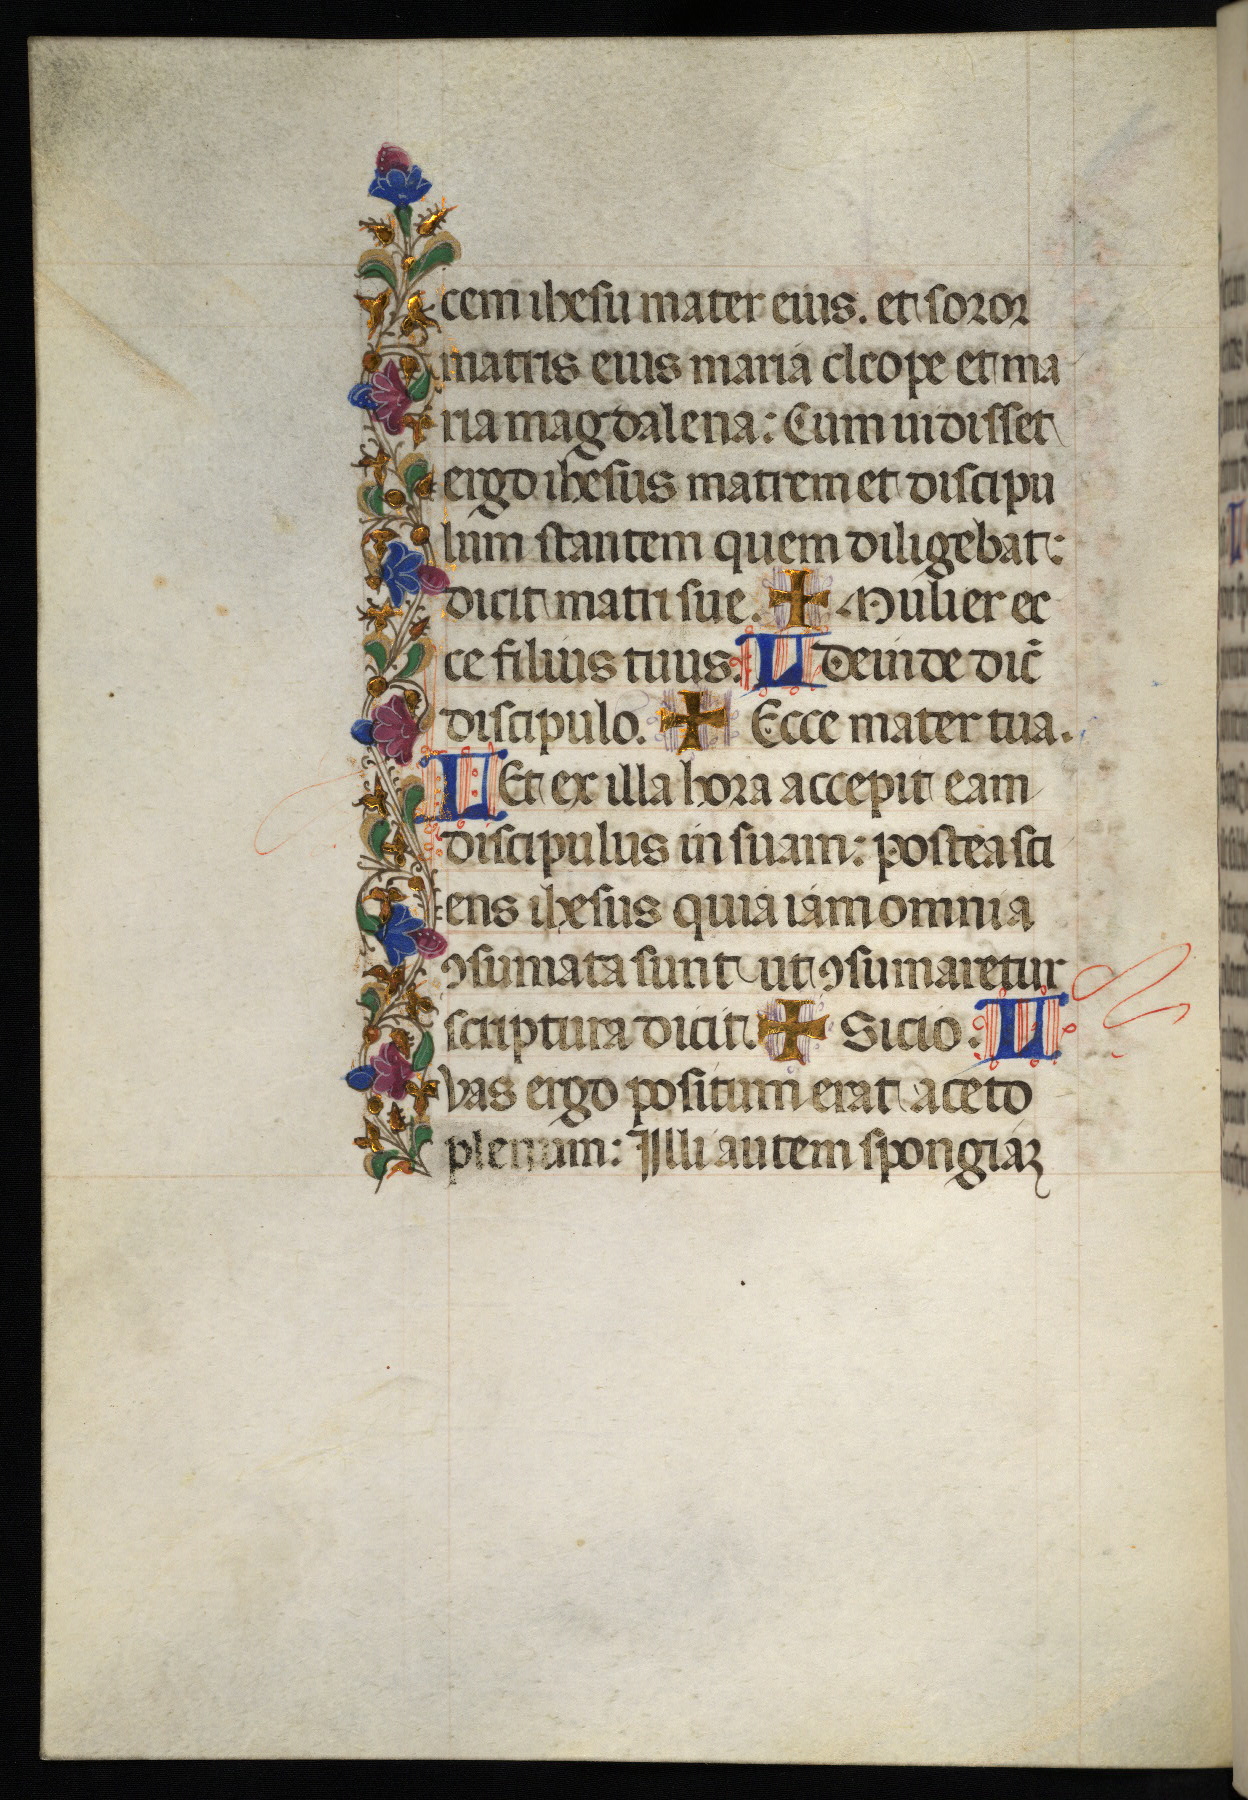 cem ihesu mater eius. et soror
matris eius maria cleope et ma
ria magdalena: Cum uidisset
ergo ihesus matrem et discipu
lum stantem quem diligebat:
dicit matri sue. ✠ Mulier ec
ce filius tuus. L Deinde dic̄
discipulo. ✠ Ecce mater tua.
L Et ex illa hora accepit eam
discipulus in suam: postea sci
ens ihesus quia iam omnia
ꝯsumata sunt ut ꝯsumaretur
scriptura dicit. ✠ Sicio. L
Vas ergo positum erat aceto
plenum: Illi autem spongiaꝫ